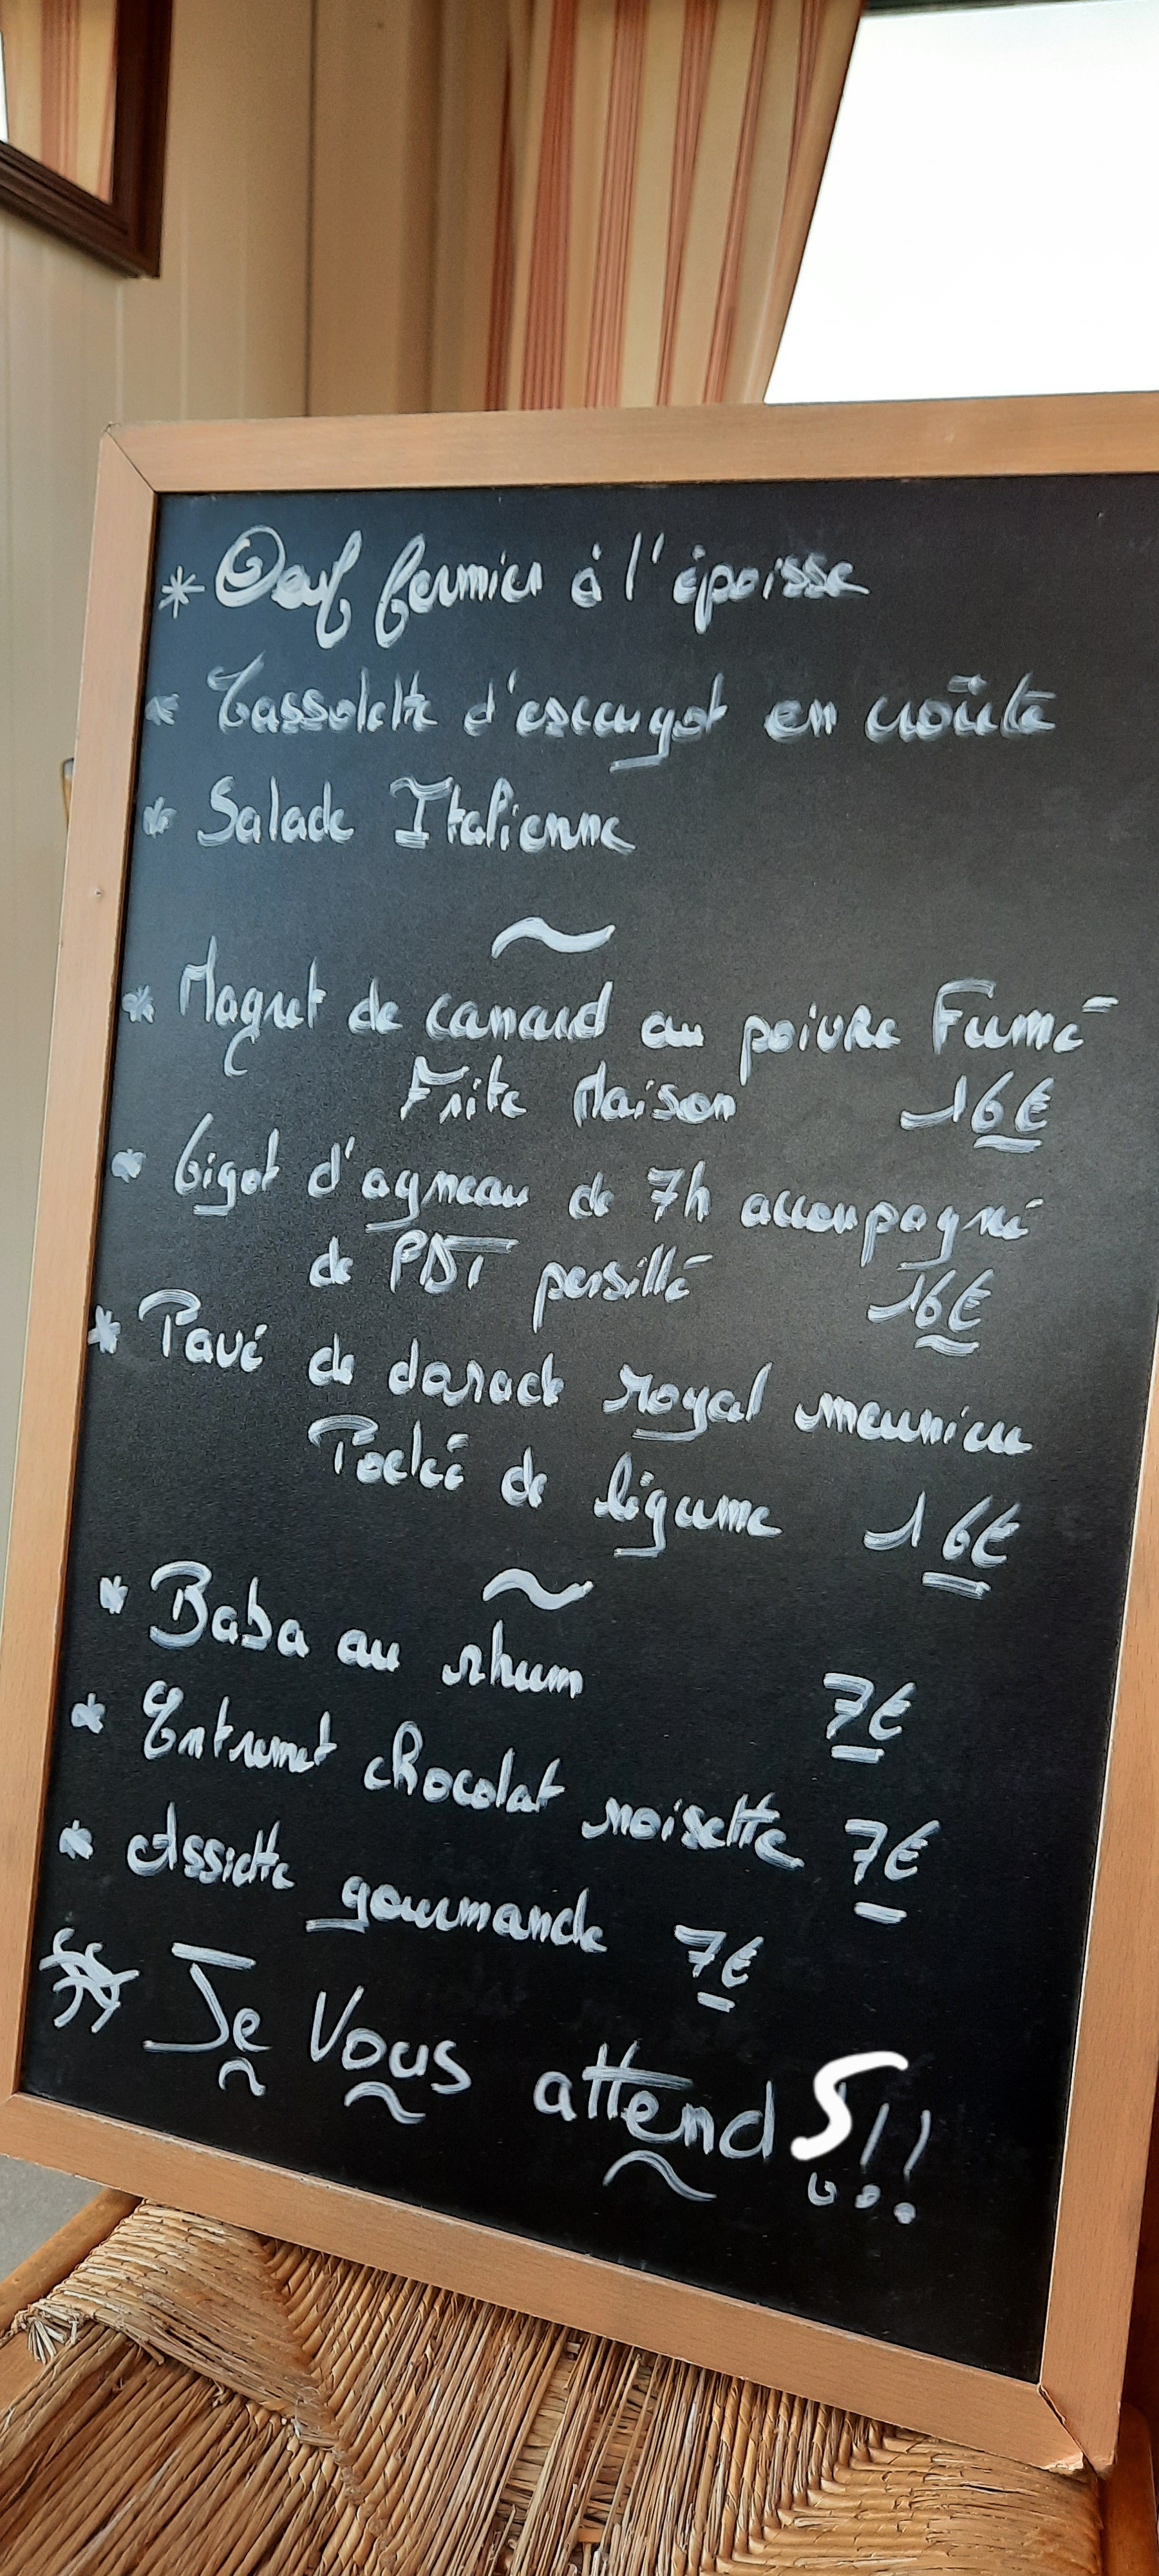 * Oeuf fermier à l'époisse
* Cassolette d'escargot en croûte
* Salade Italienne
~
* Magret de canard au poivre Fumé
Frite Maison 16€
* Gigot d'agneau de 7h accompagné
de PDT persillé 16€
* Pavé de dorade royal meunière
Poeléé de légume 16€
~
* Baba au rhum 7€
* Entremet chocolat noisette 7€
* Assiette gourmande 7€
* Je Vous attendS!!